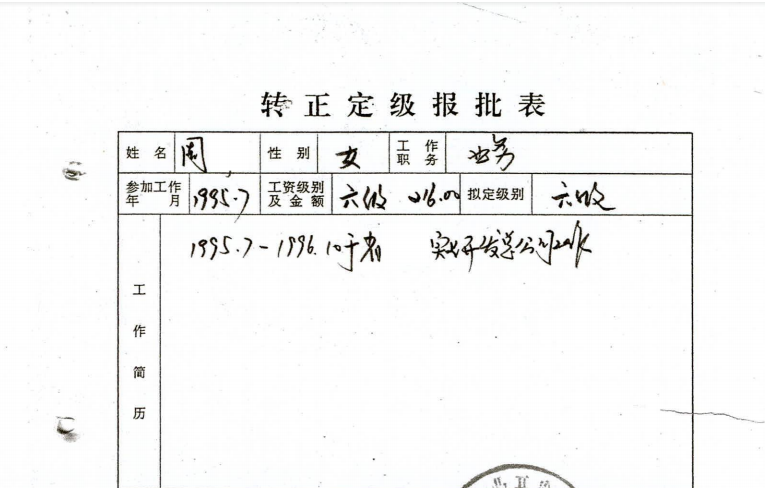 转正定级报批表
姓名 周 性别 女 工作职务 业务
参加工作年月 1995.7 工资级别及金额 六级 216.00 拟定级别 六级
1995.7-1996.10于 实业开发总公司工作
工作简历